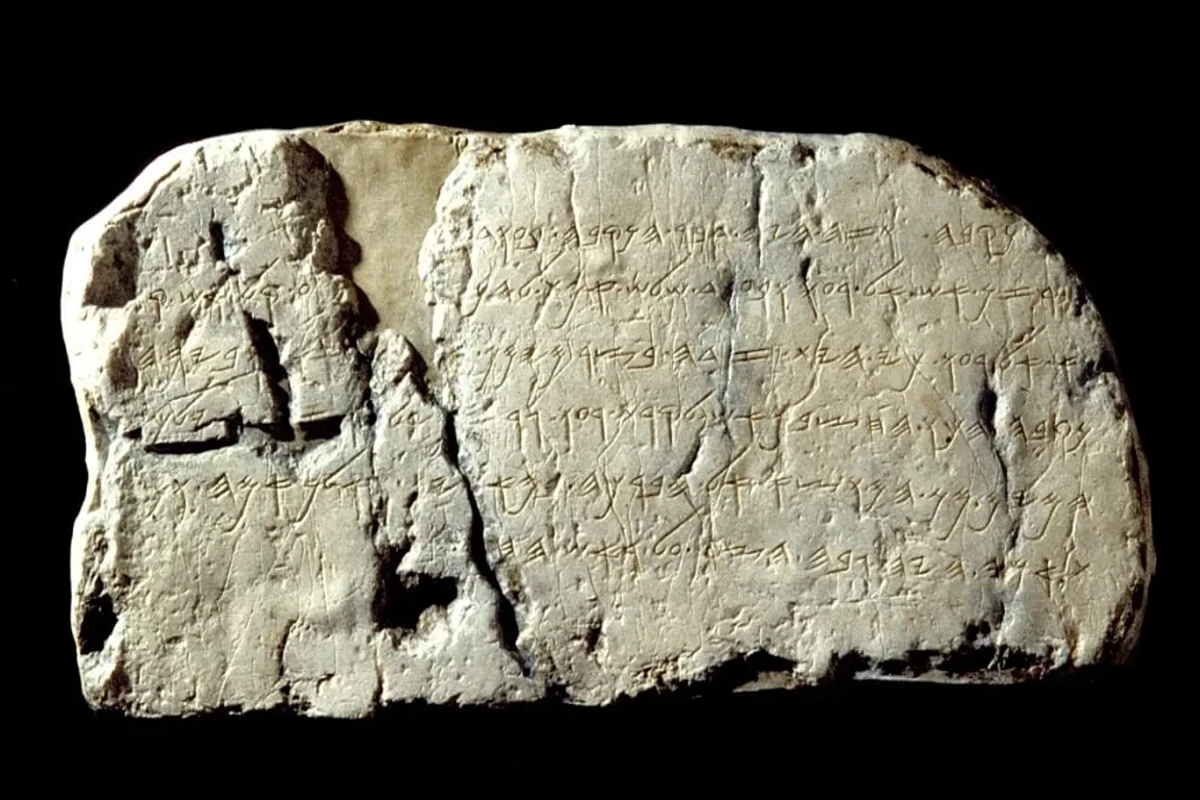 הנקבה . וזה . היה . דבר . הנקבה . בעוד
הגרזן . אש . אל . רעו . ובעוד . שלש . אמת . להנ ע . קל . אש . ק
רא . אל . רעו . כי . הית . זדה . בצר . מימן . ובים . ה
נקבה . הכו . החצבם . אש . לקרת . רעו . גרזן . על . רזן . וילכו
המים . מן . המוצא . אל . הברכה . במאתים . ואלף . אמה . ומ
את . אמה . היה . גבה . הצר . על . ראש . החצב